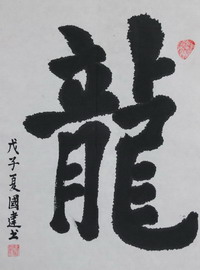 龍
戊子夏國建书